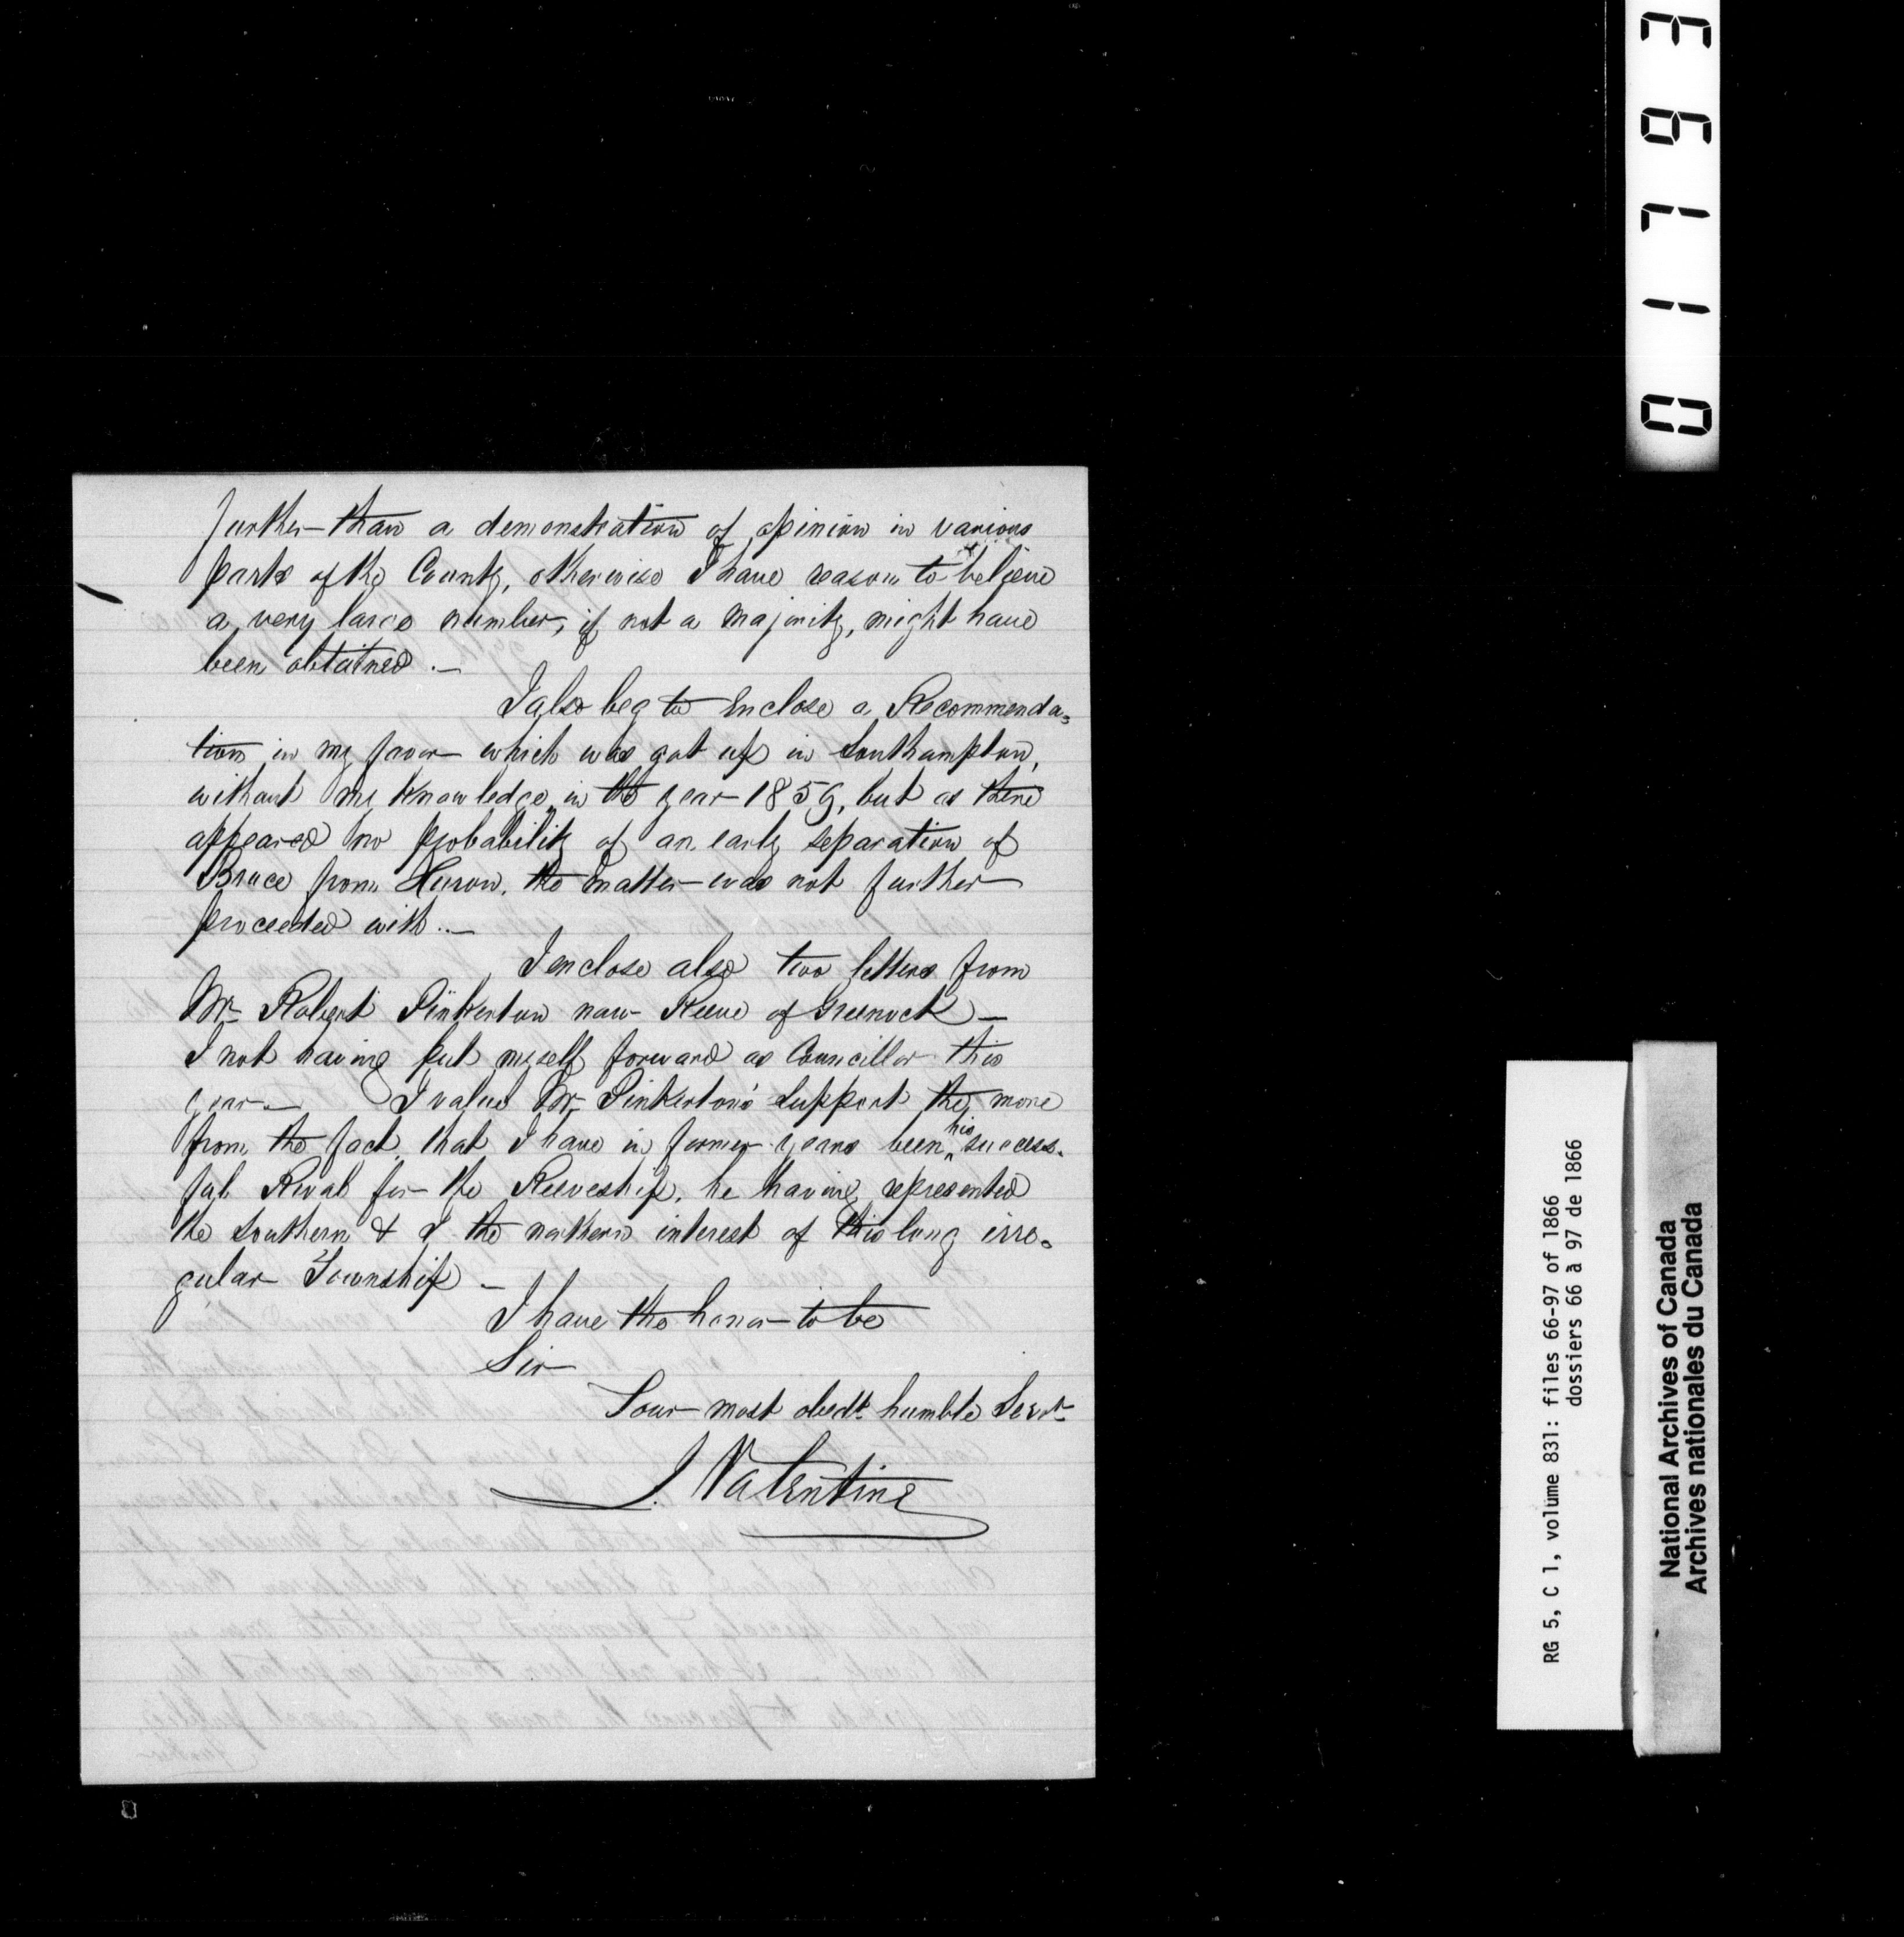 further than a demonstration of opinion in various
parts of the County, otherwise I have reason to believe
a very large number, if not a majority, might have
been obtained.—
I also beg to Enclose a Recommenda=
tion in my favor which was got up in Southampton,
without my knowledge in the year 1859, but as there
appeared no probability of an early separation of
Bruce from Huron, the matter was not further
proceeded with..—
I enclose also two letters from
Mr Robert Pinkerton now Reeve of Greenock —
I not having put myself forward as Councillor this
year — I value Mr Pinkerton's support the more
from the fact, that I have in former years been his success-
ful Rival for the Reeveship, he having represented
the Southern & I the northern interest of this long irre=
gular Township —
I have the honor to be
Sir
Your most obedt humble Servt
J. Valentine
01793
RG 5, C 1, volume 831: files 66-97 of 1866
dossiers 66 à 97 de 1866
National Archives of Canada
Archives nationales du Canada